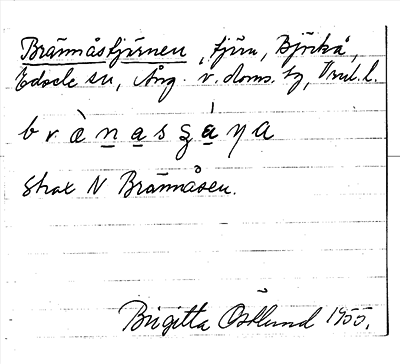 Brännåstjärnen, tjärn, Björkå,
Edsele sn, Ång. v. doms. tg, Vrnl. l.
brànasʒáŋa
Strax N Brännåsen.
Birgitta Östlund 1955.